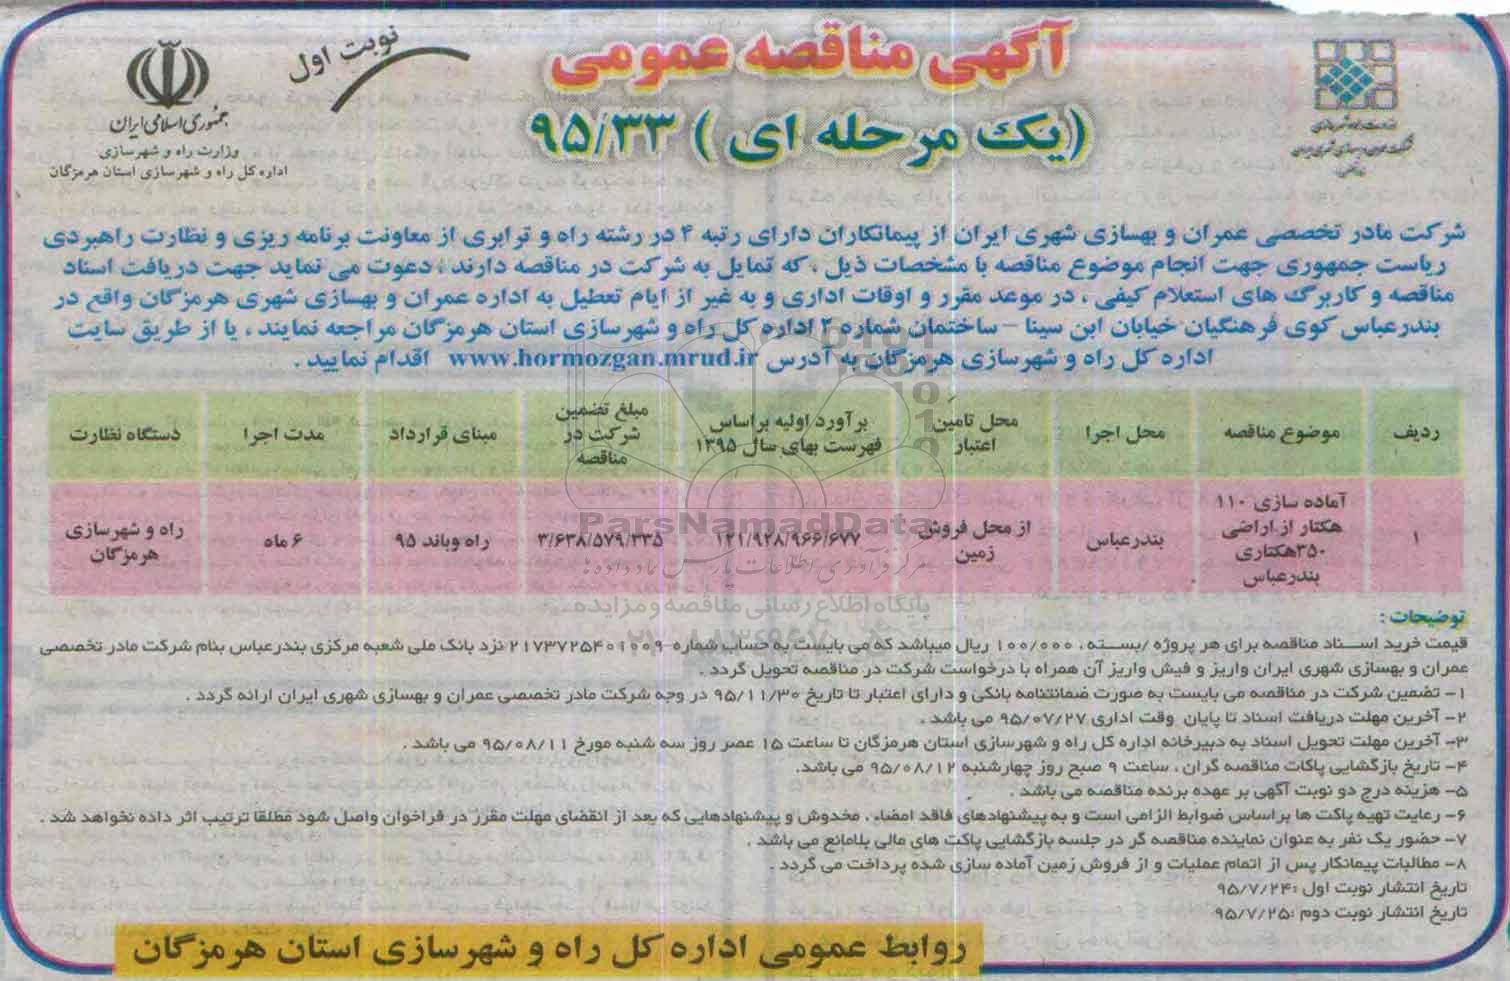 آگهی مناقصه عمومی
(یک مرحله ای ) ۹۵/۳۳
نوبت اول
جمهوری اسلامی ایران
وزارت راه و شهرسازی
اداره کل راه و شهرسازی استان هرمزگان
وزارت راه و شهرسازی
شرکت عمران و بهسازی شهری ایران
شرکت مادر تخصصی عمران و بهسازی شهری ایران از پیمانکاران دارای رتبه ۴ در رشته راه و ترابری از معاونت برنامه ریزی و نظارت راهبردی
ریاست جمهوری جهت انجام موضوع مناقصه با مشخصات ذیل ، که تمایل به شرکت در مناقصه دارند ، دعوت می نماید جهت دریافت اسناد
مناقصه و کاربرگ های استعلام کیفی ، در موعد مقرر و اوقات اداری و به غیر از ایام تعطیل به اداره عمران و بهسازی شهری هرمزگان واقع در
بندرعباس کوی فرهنگیان خیابان ابن سینا – ساختمان شماره ۲ اداره کل راه و شهرسازی استان هرمزگان مراجعه نمایند ، یا از طریق سایت
اداره کل راه و شهرسازی هرمزگان به آدرس www.hormozgan.mrud.ir اقدام نمایید .
ردیف | موضوع مناقصه | محل اجرا | محل تامین اعتبار | برآورد اولیه براساس فهرست بهای سال ۱۳۹۵ | مبلغ تضمین شرکت در مناقصه | مبنای قرارداد | مدت اجرا | دستگاه نظارت
۱ | آماده سازی ۱۱۰ هکتار از اراضی ۳۵۰هکتاری بندرعباس | بندرعباس | از محل فروش زمین | ۱۲۱/۹۲۸/۹۶۶/۶۷۷ | ۳/۶۳۸/۵۷۹/۳۳۵ | راه وباند ۹۵ | ۶ ماه | راه و شهرسازی هرمزگان
ParsNamadData
مرکز فرآوری اطلاعات پارس نماد داده ها
پایگاه اطلاع رسانی مناقصه و مزایده
توضیحات :
قیمت خرید اسناد مناقصه برای هر پروژه /بسته ، ۱۰۰/۰۰۰ ریال میباشد که می بایست به حساب شماره ۲۱۷۳۷۲۵۴۰۱۰۰۹ نزد بانک ملی شعبه مرکزی بندرعباس بنام شرکت مادر تخصصی
عمران و بهسازی شهری ایران واریز و فیش واریز آن همراه با درخواست شرکت در مناقصه تحویل گردد .
۱– تضمین شرکت در مناقصه می بایست به صورت ضمانتنامه بانکی و دارای اعتبار تا تاریخ ۹۵/۱۱/۳۰ در وجه شرکت مادر تخصصی عمران و بهسازی شهری ایران ارائه گردد .
۲– آخرین مهلت دریافت اسناد تا پایان وقت اداری ۹۵/۰۷/۲۷ می باشد .
۳– آخرین مهلت تحویل اسناد به دبیرخانه اداره کل راه و شهرسازی استان هرمزگان تا ساعت ۱۵ عصر روز سه شنبه مورخ ۹۵/۰۸/۱۱ می باشد .
۴– تاریخ بازگشایی پاکات مناقصه گران ، ساعت ۹ صبح روز چهارشنبه ۹۵/۰۸/۱۲ می باشد.
۵– هزینه درج دو نوبت آگهی بر عهده برنده مناقصه می باشد .
۶– رعایت تهیه پاکت ها براساس ضوابط الزامی است و به پیشنهادهای فاقد امضاء ، مخدوش و پیشنهادهایی که بعد از انقضای مهلت مقرر در فراخوان واصل شود مطلقا ترتیب اثر داده نخواهد شد .
۷– حضور یک نفر به عنوان نماینده مناقصه گر در جلسه بازگشایی پاکت های مالی بلامانع می باشد .
۸– مطالبات پیمانکار پس از اتمام عملیات و از فروش زمین آماده سازی شده پرداخت می گردد .
تاریخ انتشار نوبت اول :۹۵/۷/۲۴
تاریخ انتشار نوبت دوم :۹۵/۷/۲۵
روابط عمومی اداره کل راه و شهرسازی استان هرمزگان